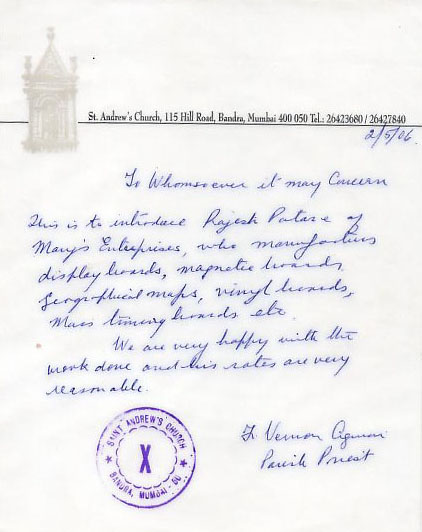 St. Andrew's Church, 115 Hill Road, Bandra, Mumbai 400 050 Tel.: 26423680 / 26427840
2/5/06.
To Whomsoever it may Concern
This is to introduce Rajesh Patare of
Mary's Enterprises, who manufacturers
display boards, magnetic boards,
Geographical maps, vinyl boards,
Mass timing boards etc.
We are very happy with the
work done and his rates are very
reasonable.
SAINT ANDREW'S CHURCH
X
BANDRA, MUMBAI - 50
Fr Vernon
Parish Priest